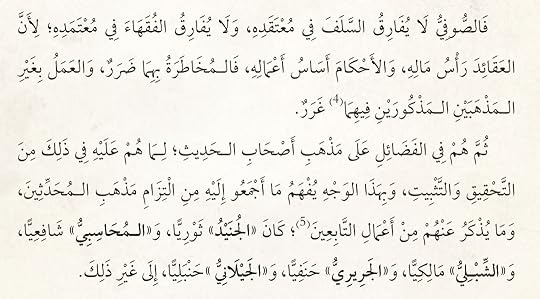 فَالصُّوفِيُّ لَا يُفَارِقُ السَّلَفَ فِي مُعْتَقَدِهِ، وَلَا يُفَارِقُ الفُقَهَاءَ فِي مُعْتَمَدِهِ؛ لِأَنَّ
العَقَائِدَ رَأْسُ مَالِهِ، وَالأَحْكَامَ أَسَاسُ أَعْمَالِهِ، فَالـمُخَاطَرَةُ بِهِمَا ضَرَرٌ، وَالعَمَلُ بِغَيْرِ
الـمَذْهَبَيْنِ الـمَذْكُورَيْنِ فِيهِمَا(4) غَرَرٌ.
ثُمَّ هُمْ فِي الفَضَائِلِ عَلَى مَذْهَبِ أَصْحَابِ الـحَدِيثِ؛ لِـمَا هُمْ عَلَيْهِ فِي ذَلِكَ مِنَ
التَّحْقِيقِ وَالتَّثْبِيتِ، وَبِهَذَا الوَجْهِ يُفْهَمُ مَا أَجْمَعُو إِلَيْهِ مِنِ التِزَامِ مَذْهَبِ الـمُحَدِّثِينَ،
وَمَا يُذْكَرُ عَنْهُمْ مِنْ أَعْمَالِ التَّابِعِينَ(5)؛ كَانَ «الجُنَيْدُ» ثَوْرِيًّا، وَ«الـمُحَاسِبِيُّ» شَافِعِيًّا،
وَ«الشِّبْلِيُّ» مَالِكِيًّا، وَ«الجَرِيرِيُّ» حَنَفِيًّا، وَ«الجَيْلَانِيُّ» حَنْبَلِيًّا، إِلَى غَيْرِ ذَلِكَ.